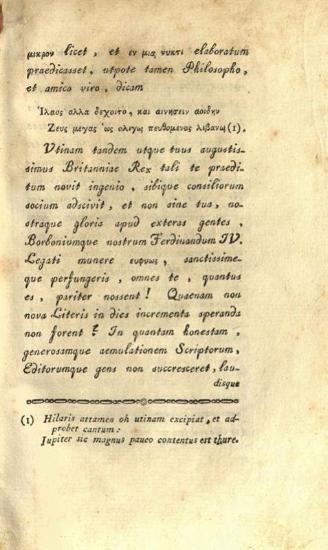 μικρον licet, et εν μια νυκτι elaboratum
praedicasset, utpote tamen Philosopho,
et amico viro, dicam
Ἱλαος αλλα δεχοιτο, και αινησειν αοιδην
Ζευς μεγας ὡς ολιγω πειθομενος λιβανω (1).
Vtinam tandem utque tuus augustis-
simus Britanniae Rex tali te praedi-
tum novit ingenio, sibique consiliorum
socium adscivit, et non sine tua, no-
straque gloria apud exteras gentes,
Borboniumque nostrum Ferdinandum IV.
Legati munere ευφυως, sanctissime-
que perfungeris, omnes te, quantus
es, pariter nossent! Quaenam non
nova Literis in dies incrementa speranda
non forent? In quantam honestam,
generosamque aemulationem Scriptorum,
Editorumque gens non succresceret, lau-
disque
(1) Hilaris attamen oh utinam excipiat, et ad-
probet cantum:
Jupiter sic magnus pauco contentus est thure.